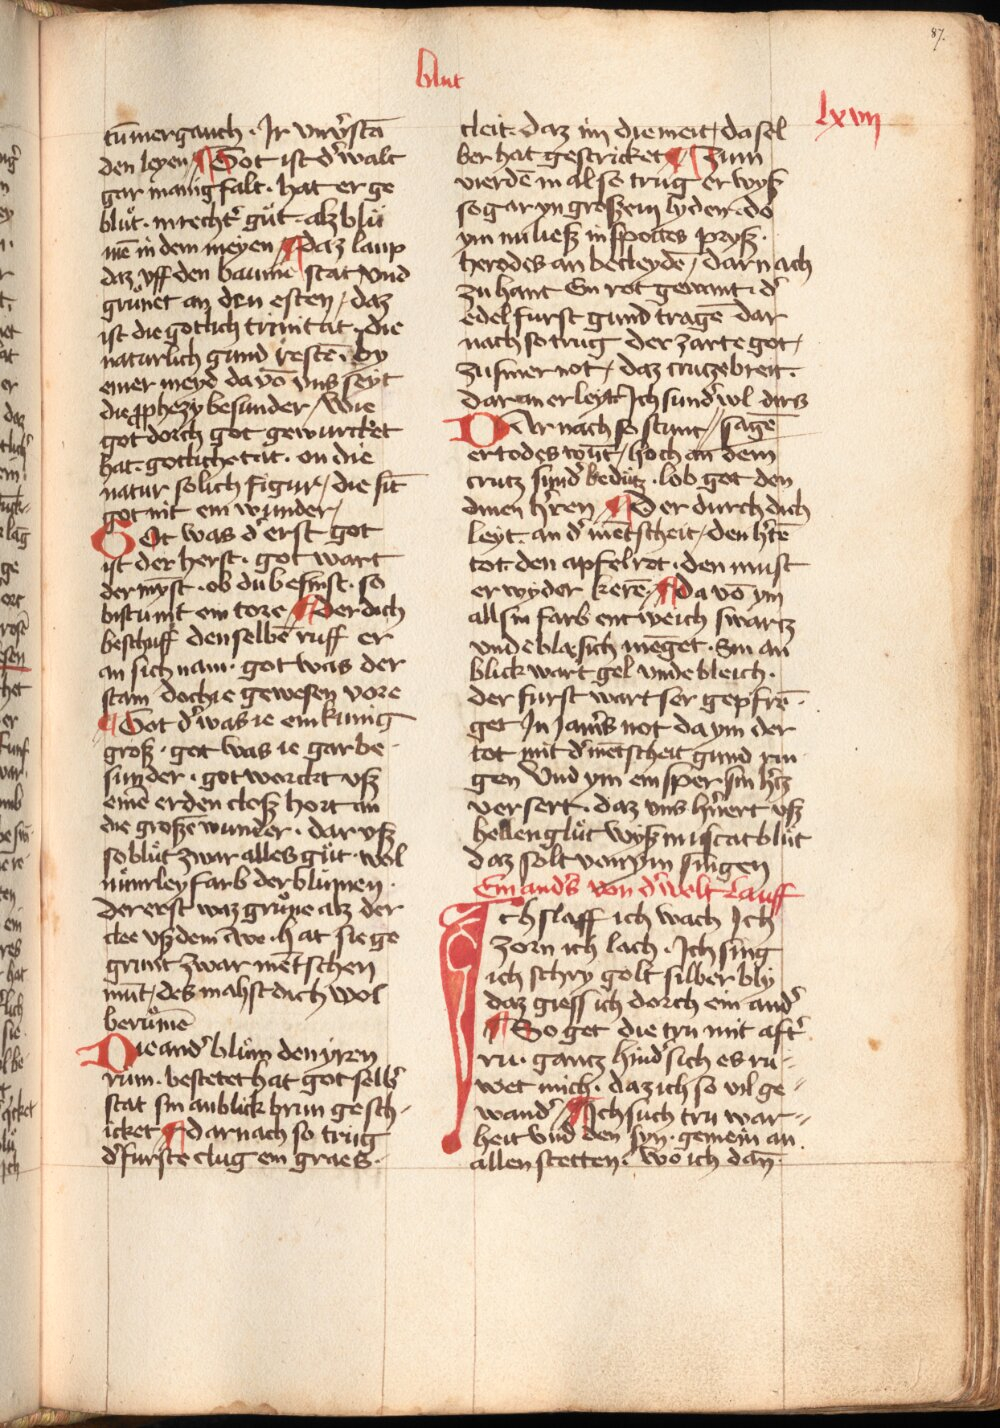 87.
blut
lxvij
tummergauch . Ir vnv̉stā
den leyen ¶ Got ist d̉ walt
gar manig falt . hat er ge
blu̍t . in recht̉ gu̍t . alz blu̍
mē in dem meyen ¶ daz laup
daz vff den baume stat vnd
gru̍net an den esten / daz
ist die gotlich trinitat . die
naturlich gund restē . by
einer meyd da vō vns seyt
die ꝓphezy besunder / wie
got dorch got gewurcket
hat . gotliche tat . on die
natur solich figur / die sit̄
got nit ein wunder /
Got was d̉ erst got
ist der herst . got wart
der mynst . ob du besinst . so
bistu nit ein tore ¶ Der dich
beschuff den selbē ruff er
an sich nam . got was der
stam doch ie gewesen vore
¶ Got d̉ was ie ein kunig
groß . got was ie gar be
sunder . got worckt vß
einē erden cloß hort an
die großē wunder . dar vß
so blu̍t zwar alles gu̍t . wol
nu̍nrley farb der blu̍men .
Der erst waz gru̍ne alz der
clee vß dem awe . hat sie ge
grunt zwar mētschen
mut / des mahst dich wol
beru̍mē
Die and̉ blu̍m den yren
rum . bestetet hat got selb̉
stat sin anblick brun gesch
icket ¶ darnach so trug
d̉ furste clug ein graes .
cleit . daz im die meit / da sel
ber hat gestricket ¶ Zum
vierdē mal so trug er wyß
so gar yn großem lyden . do
ym nu ließ in spottes pryß .
herodes an becleydē / darnach
zu hant Ein rot gewant . d̉
edel furst gund tragē dar
nach so trug der zarte got /
zu siner not / daz crutze breit .
dar an er leyt Ich sund̉ wl dirs
Dar nach so stunt // sagē
er todes wu̍t / hoch an dem
crutz sund̉ bedu̍tz . lob got den
dinen h̉ren ¶ Der durch dich
leyt . an d̉ mētscheit / den h̉tē
tot den apfel rot . den must
er wyder kerē ¶ Da vō ym
all sin farb entweich swartz
vnde bla sich menget . Sin an
blick wart gel vnde bleich .
der furst wart ser gepfrē
get In jam̉s not da ym der
tot mit d̉ mētscheit gund rin
gen Vnd ym ein sper sin h̉tz
versert . daz vns h̉nert vß
hellen glu̍t wyß muscatblu̍t
daz solt von ym singen
Ein and̉s von d̉ welt lauff
Ich slaff ich wach Ich
zorn ich lach . Ich sing
ich schry golt silber bly
daz giess ich dorch ein and̉
¶ So get die tru mit aft̉
ru . gantz hind̉ sich es ru
wet mich . daz ich so vil ge
wand̉ ¶ Ich such tru war
heit vnd den syn . gemein an
allen stetten . wo ich dan̄